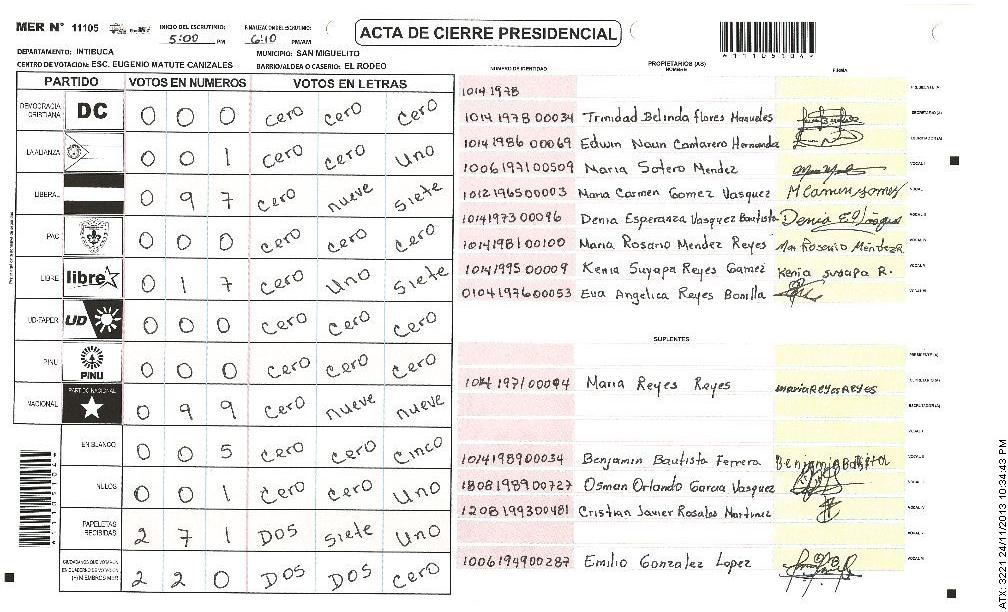 MER N° 11105 INICIO DEL ESCRUTINIO: 5:00 PM FINALIZACION DEL ESCRUTINIO: 6:10 PM/AM
ACTA DE CIERRE PRESIDENCIAL
DEPARTAMENTO: INTIBUCA MUNICIPIO: SAN MIGUELITO
CENTRO DE VOTACION: ESC. EUGENIO MATUTE CANIZALES BARRIO/ALDEA O CASERIO: EL RODEO
PARTIDO VOTOS EN NUMEROS VOTOS EN LETRAS
DEMOCRACIA CRISTIANA DC 0 0 0 Cero Cero Cero
LA ALIANZA 0 0 1 Cero Cero Uno
LIBERAL 0 9 7 Cero nueve Siete
PAC 0 0 0 Cero Cero Cero
LIBRE libre 0 1 7 Cero Uno Siete
UD-FAPER UD 0 0 0 Cero Cero Cero
PINU PINU 0 0 0 Cero Cero Cero
NACIONAL PARTIDO NACIONAL 0 9 9 Cero nueve nueve
EN BLANCO 0 0 5 Cero Cero Cinco
NULOS 0 0 1 Cero Cero Uno
PAPELETAS RECIBIDAS 2 7 1 Dos Siete Uno
CIUDADANOS QUE VOTARON EN CUADERNO DE VOTACION (+) MIEMBROS MER 2 2 0 Dos Dos Cero
11151044
NUMERO DE IDENTIDAD PROPIETARIOS (AS) NOMBRE FIRMA
1014 1978 PRESIDENTE (A)
1014 1978 00034 Trinidad Belinda flores SECRETARIO (A)
1014 1986 00069 Edwin Noun Cantarero Hernandez ESCRUTADOR (A)
1006 1971 00509 Maria Sotero Mendez VOCAL I
1012196500003 Maria Carmen Gomez Vasquez M Carmen gomez
1014 1973 00096 Denia Esperanza Vasquez Bautista Denia E Vasquez
1014 1981 00100 Maria Rosario Mendez Reyes Ma Rosario Méndez R
1014 1995 00009 Kenia Suyapa Reyes Gamez Kenia suyapa R.
0104197600053 Eva Angelica Reyes Bonilla
SUPLENTES
PRESIDENTE (A)
1014 1971 00094 Maria Reyes Reyes maria REYES REYES SECRETARIO (A)
ESCRUTADOR (A)
VOCAL I
1014198900034 Benjamin Bautista Ferrera
1808198900727 Osman Orlando Garcia Vasquez
1208199300481 Cristian Javier Rosales Martinez
1006194900287 Emilio Gonzalez Lopez
ATX: 3221 24/11/2013 10:34:43 PM